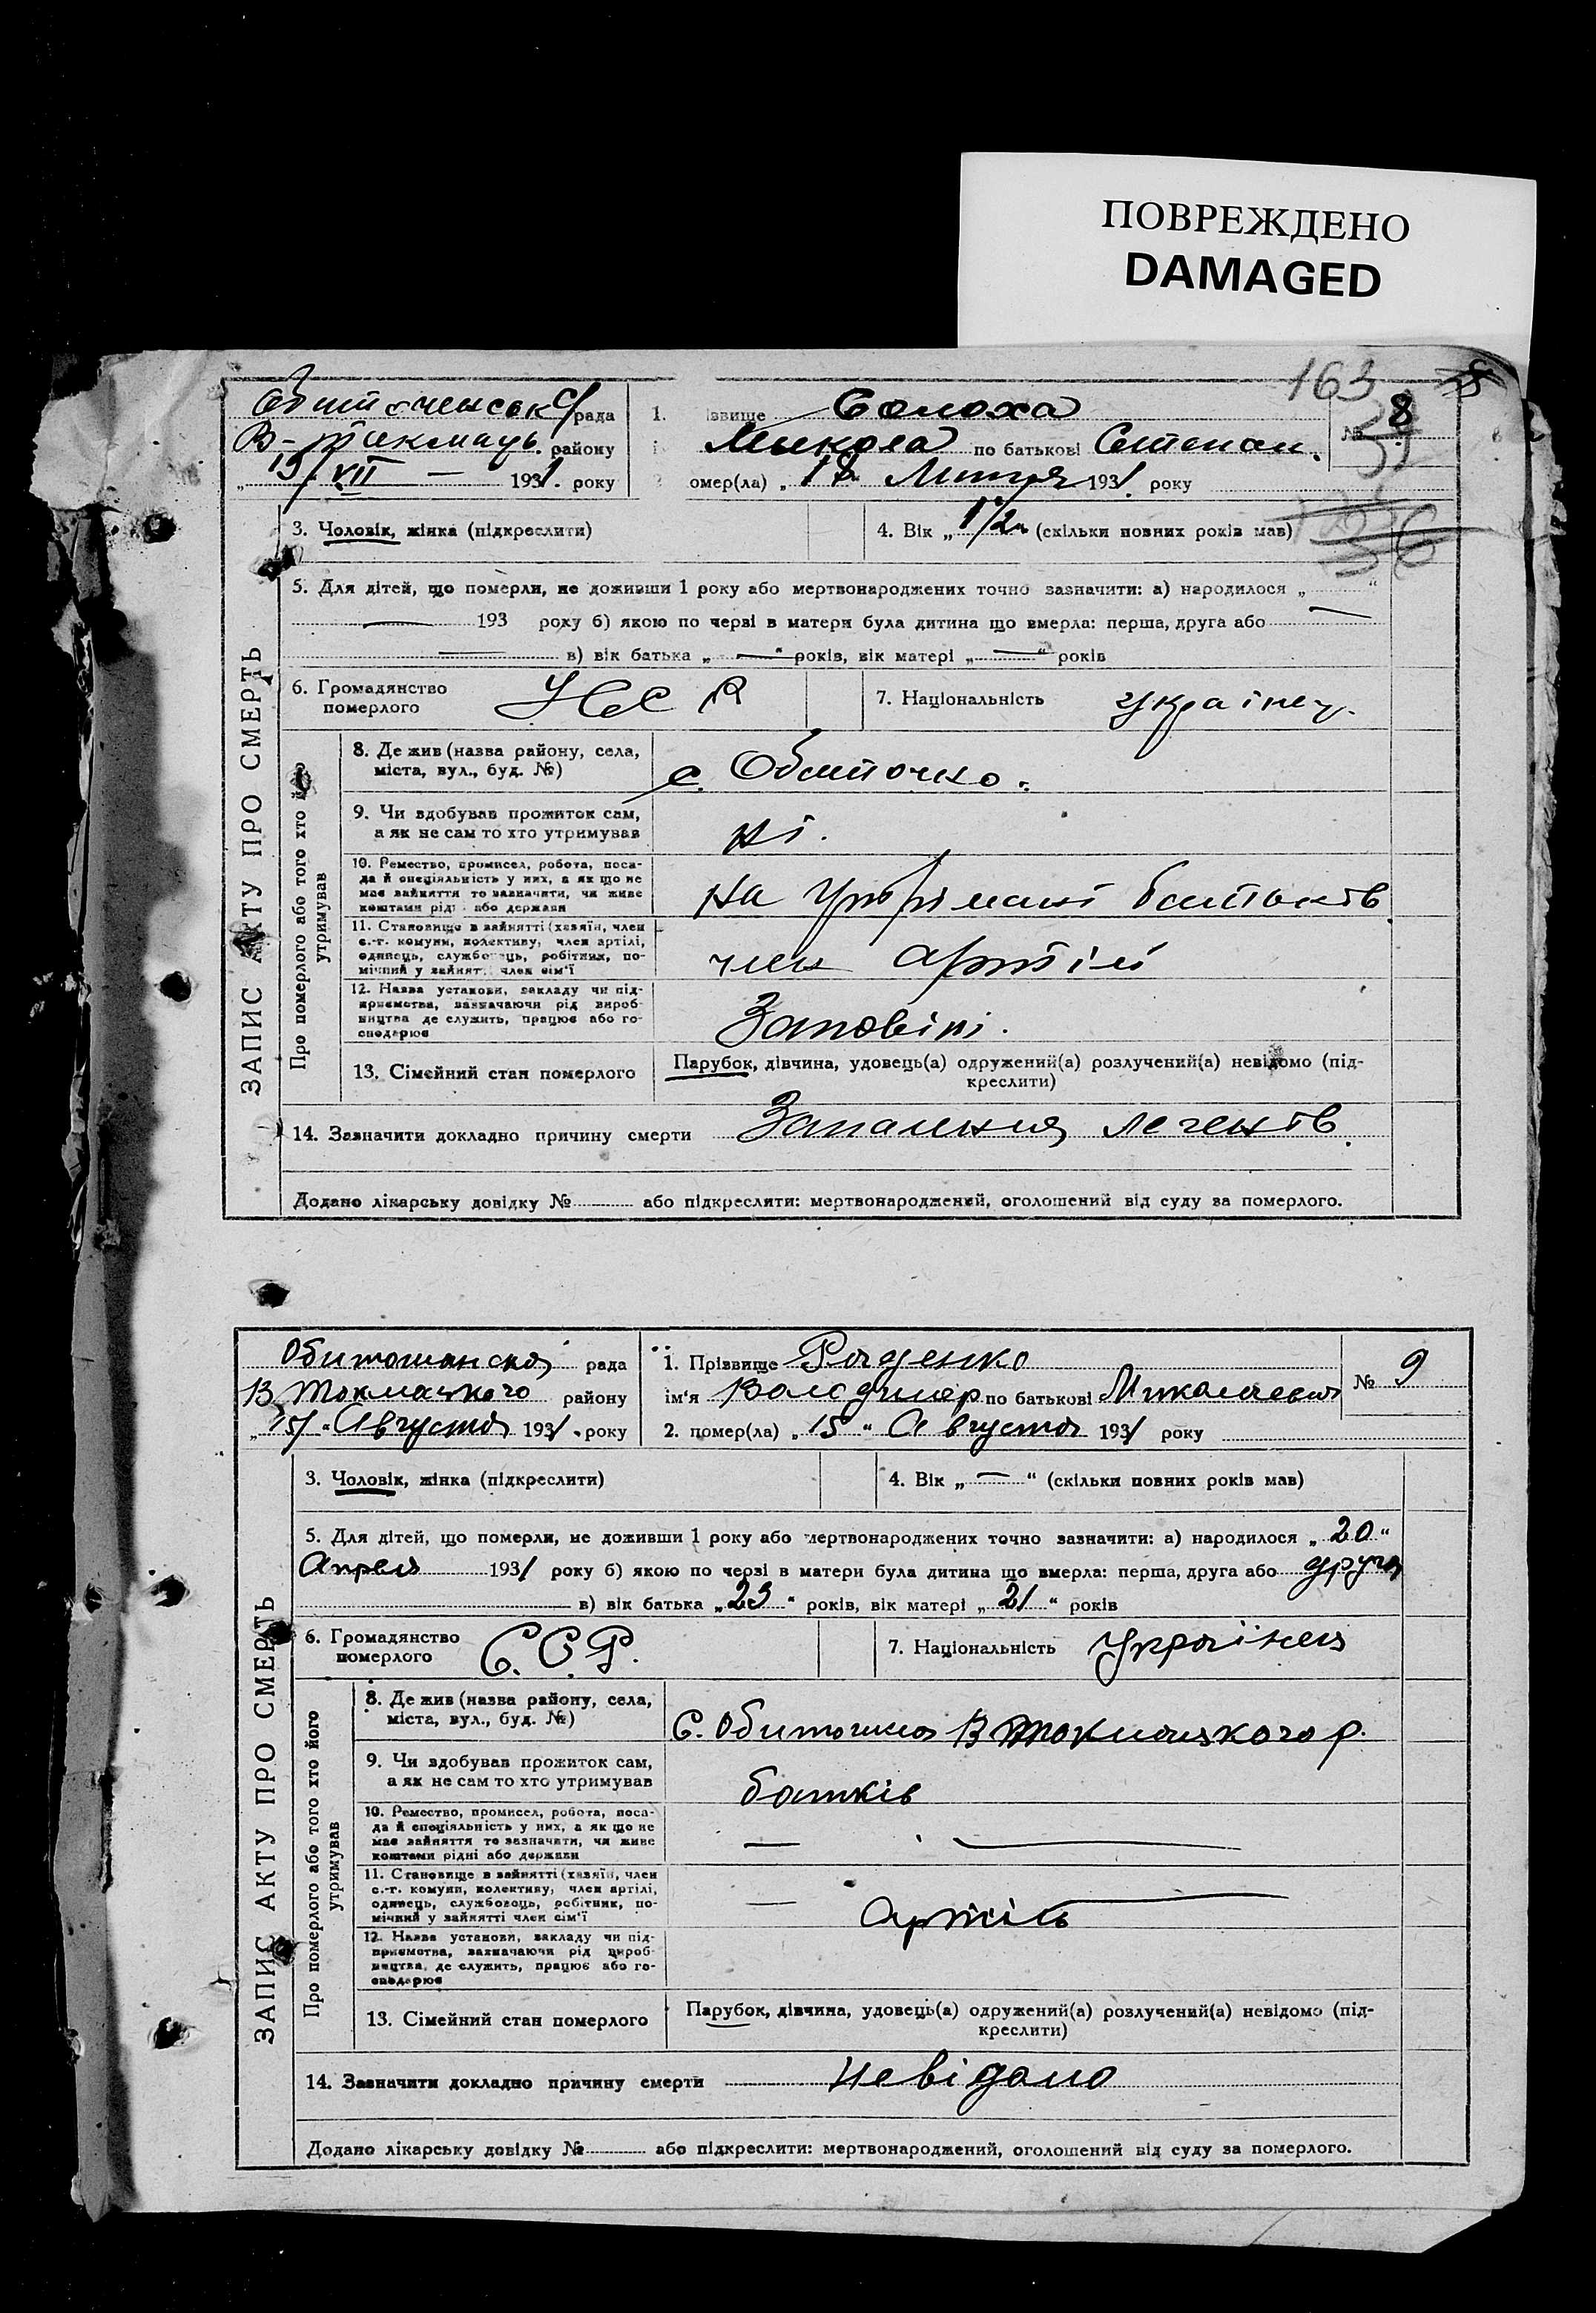 ПОВРЕЖДЕНО
DAMAGED
163
рада
В-Токмацьк. району
„ 19/VII — 1931. року
1. ізвище Солоха
Микола по батькові Степан.
омер(ла) „ 18 " Липня 1931 року
№ 8
3. Чоловік, жінка (підкреслити)
4. Вік „ 1 1/2 " (скільки повних років мав)
5. Для дітей, що померли, не доживши 1 року або мертвонароджених точно зазначити: а) народилося „ "
— 193 року б) якою по черзі в матери була дитина що вмерла: перша, друга або —
— в) вік батька „ — " років, вік матері „ — " років
6. Громадянство
померлого
7. Національність українец.
ЗАПИС АКТУ ПРО СМЕРТЬ
Про померлого або того хто його
утримував
8. Де жив (назва району, села,
міста, вул., буд. №)
с. Обиточно.
9. Чи вдобував прожиток сам,
а як не сам то хто утримував
ні.
10. Ремество, промисел, робота, поса-
да й спеціяльність у них, а як що не
має зайняття то зазначити, чи живе
коштами рідн або держави
на утріманні батьків
11. Становище в зайнятті (хазяїн, член
с.-г. комуни, колективу, член артілі,
одинець, службовець, робітник, по-
мічний у зайнят. член сім'ї
член артілі
12. Назва установи, закладу чи під-
приємства, зазначаючи рід вироб-
ництва де служить, працює або го-
сподарює
13. Сімейний стан померлого
Парубок, дівчина, удовець(а) одружений(а) розлучений(а) невідомо (під-
креслити)
14. Зазначити докладно причину смерти Запалення легенів.
Додано лікарську довідку № або підкреслити: мертвонароджений, оголошений від суду за померлого.
рада
В Токмацького району
„ 15/ " Августа 1931. року
1. Прізвище Раденко
ім'я Володимер по батькові Миколаевич
2. помер(ла) „ 15 " Августа 1931 року
№ 9
3. Чоловік, жінка (підкреслити)
4. Вік „ — " (скільки повних років мав)
5. Для дітей, що померли, не доживши 1 року або мертвонароджених точно зазначити: а) народилося „ 20 "
Апреля 1931 року б) якою по черзі в матери була дитина що вмерла: перша, друга або друга
в) вік батька „ 23 " років, вік матері „ 21 " років
6. Громадянство
померлого
С.С.Р.
7. Національність Українец
ЗАПИС АКТУ ПРО СМЕРТЬ
Про померлого або того хто його
утримував
8. Де жив (назва району, села,
міста, вул., буд. №)
С. Обиточна В Токмацького р.
9. Чи вдобував прожиток сам,
а як не сам то хто утримував
батків
10. Ремество, промисел, робота, поса-
да й спеціяльність у них, а як що не
має зайняття то зазначити, чи живе
коштами рідні або держави
— —
11. Становище в зайнятті (хазяїн, член
с.-г. комуни, колективу, член артілі,
одинець, службовець, робітник, по-
мічний у зайнятті член сім'ї
— Артіль
12. Назва установи, закладу чи під-
приємства, зазначаючи рід вироб-
ництва, де служить, працює або го-
сподарює
13. Сімейний стан померлого
Парубок, дівчина, удовець(а) одружений(а) розлучений(а) невідомо (під-
креслити)
14. Зазначити докладно причину смерти невідомо
Додано лікарську довідку № або підкреслити: мертвонароджений, оголошений від суду за померлого.